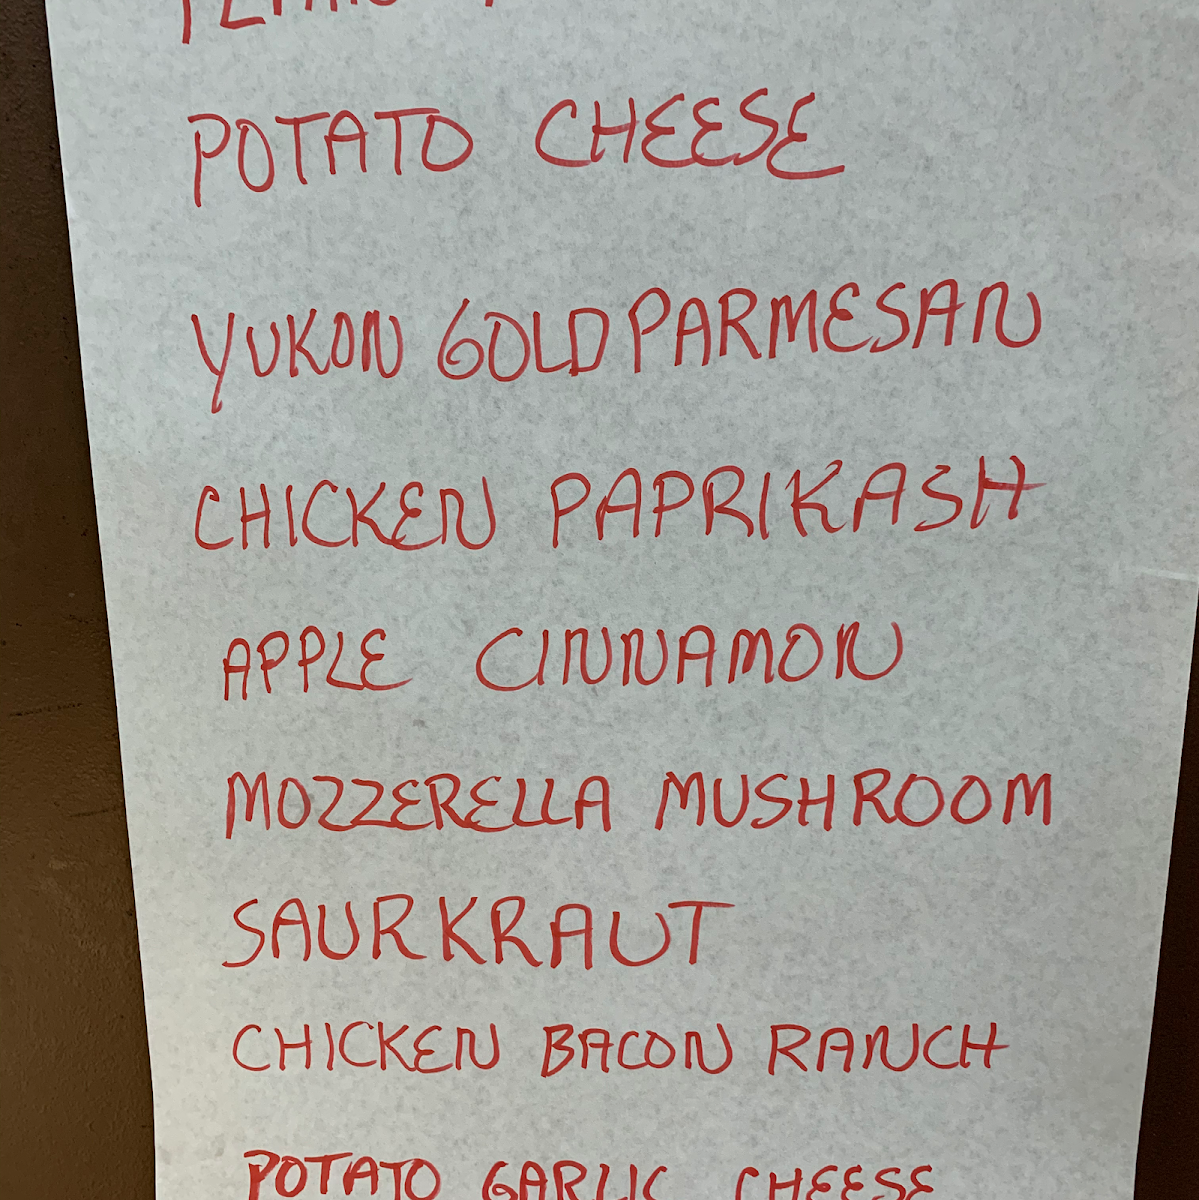 POTATO CHEESE
YUKON GOLD PARMESAN
CHICKEN PAPRIKASH
APPLE CINNAMON
MOZZERELLA MUSHROOM
SAURKRAUT
CHICKEN BACON RANCH
POTATO GARLIC CHEESE